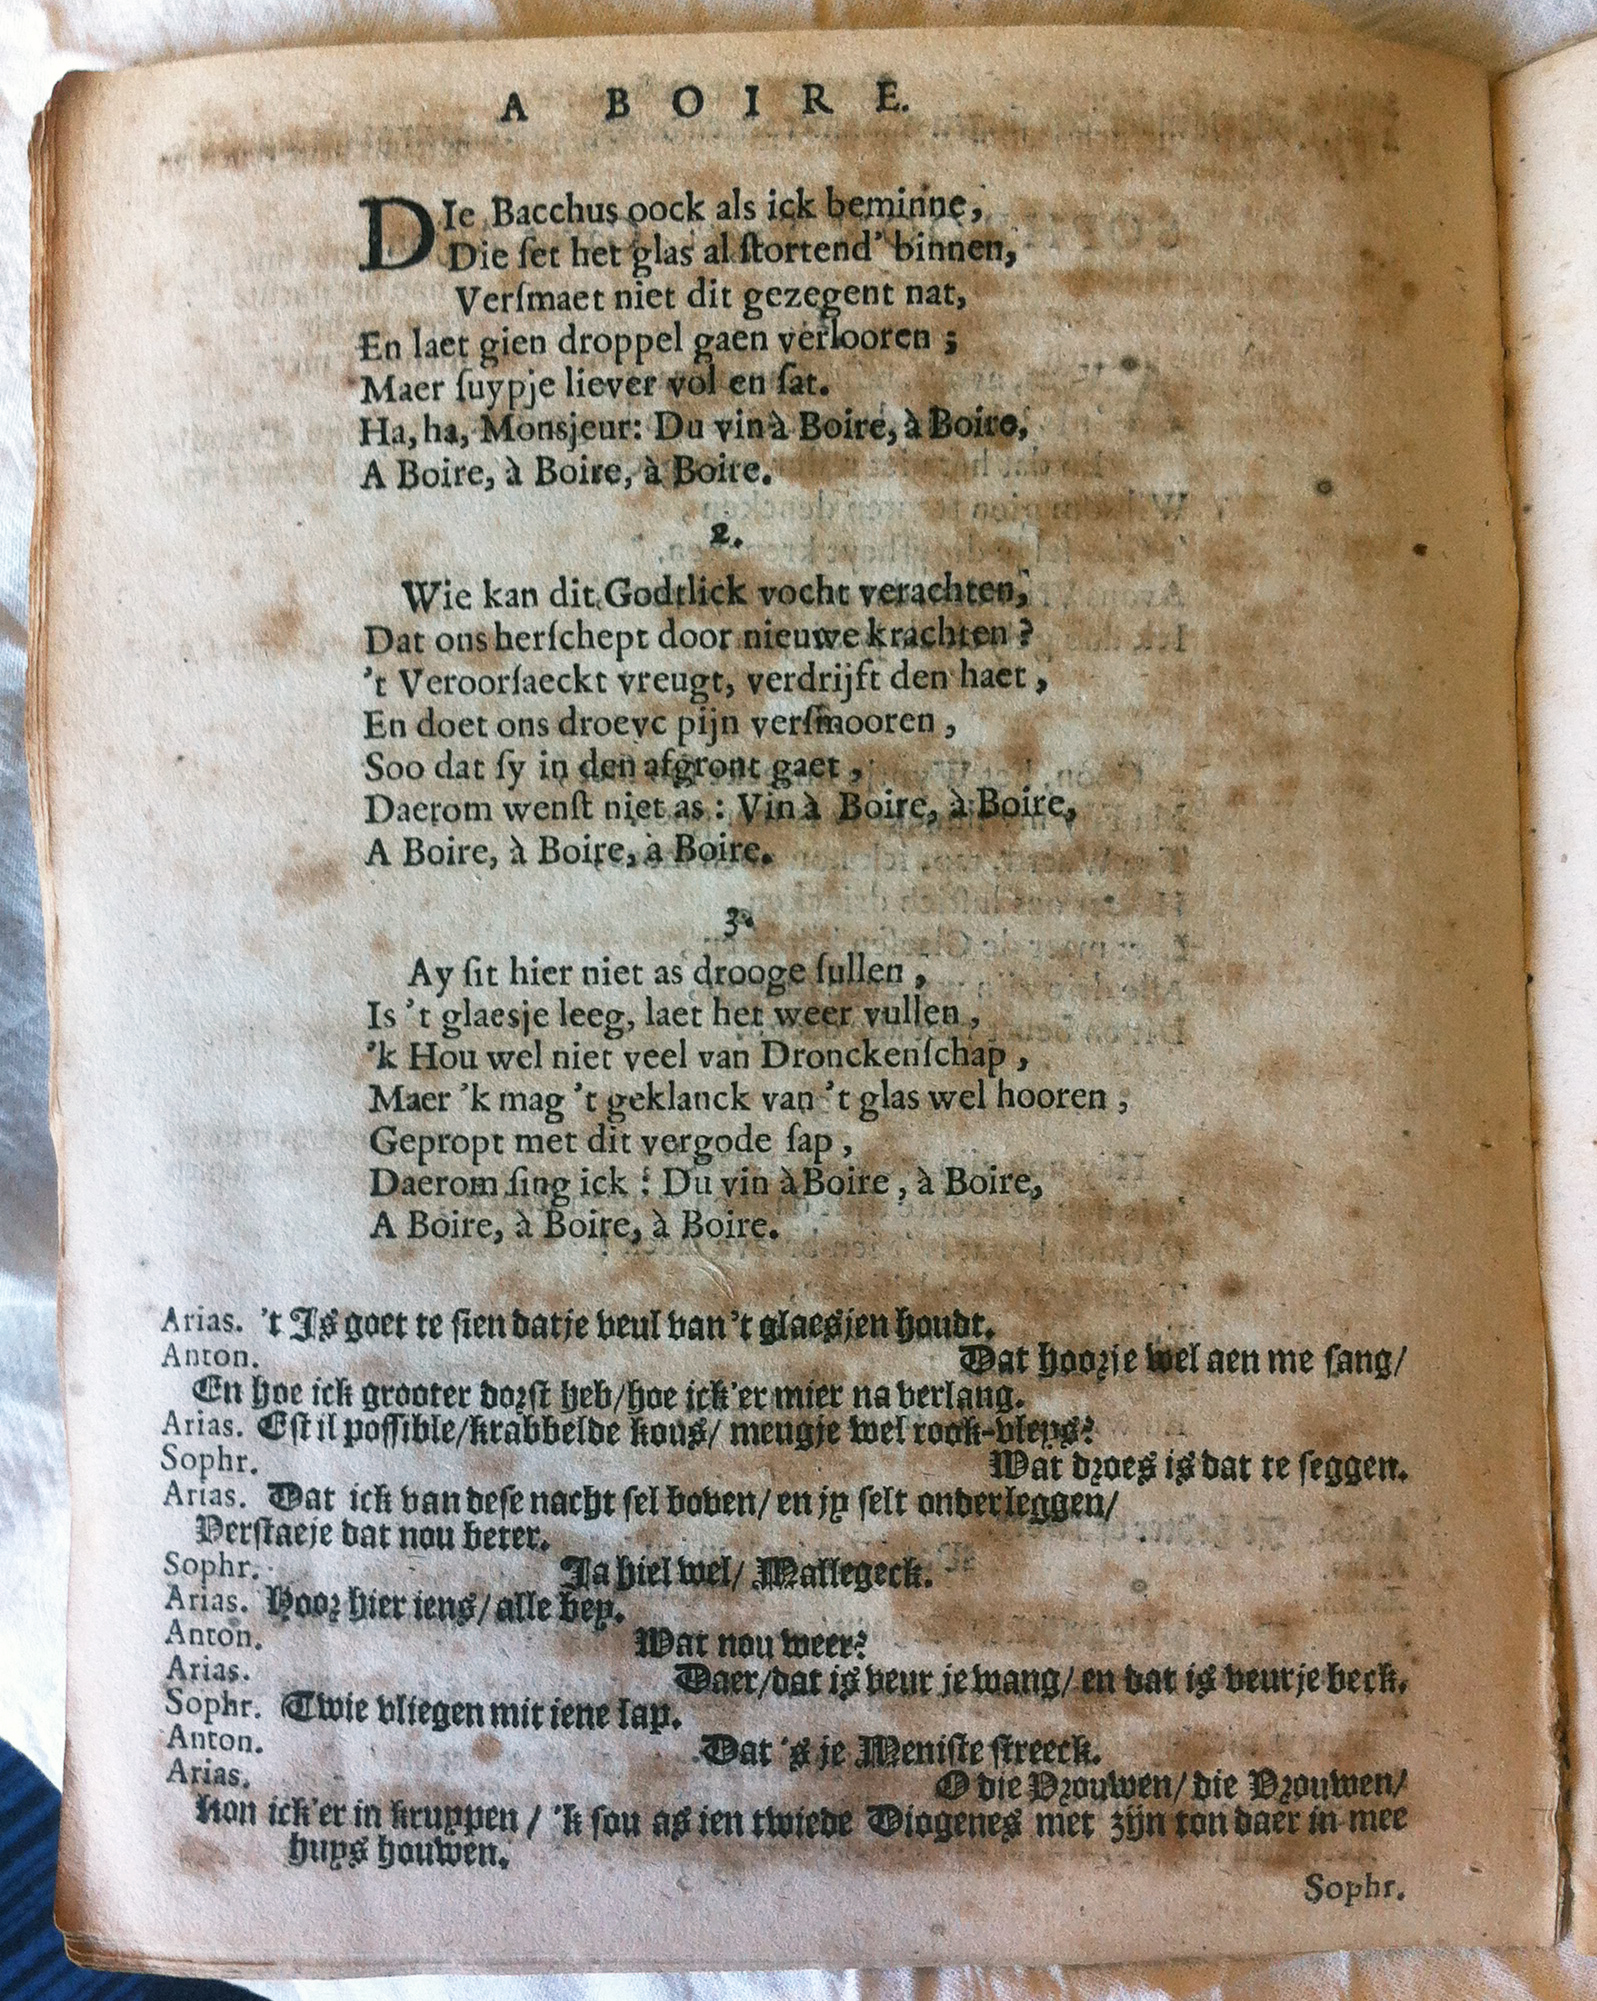 A BOIRE.
DIe Bacchus oock als ick beminne,
Die set het glas al stortend' binnen,
Versmaet niet dit gezegent nat,
En laet gien droppel gaen verlooren ;
Maer suypje liever vol en sat.
Ha, ha, Monsjeur: Du vin à Boire, à Boire,
A Boire, à Boire, à Boire.
2.
Wie kan dit Godtlick vocht verachten,
Dat ons herschept door nieuwe krachten ?
't Veroorsaeckt vreugt, verdrijft den haet ,
En doet ons droeve pijn versmooren ,
Soo dat sy in den afgront gaet ,
Daerom wenst niet as : Vin à Boire, à Boire,
A Boire, à Boire, à Boire.
3.
Ay sit hier niet as drooge sullen ,
Is 't glaesje leeg, laet het weer vullen ,
'k Hou wel niet veel van Dronckenschap ,
Maer 'k mag 't geklanck van 't glas wel hooren ,
Gepropt met dit vergode sap ,
Daerom sing ick : Du vin à Boire , à Boire,
A Boire, à Boire, à Boire.
Arias. 't Is goet te sien datje veul van 't glaesjen houdt.
Anton. Dat hoorje wel aen me sang/
En hoe ick grooter dorst heb/hoe ick'er mier na verlang.
Arias. Est il possible/krabbelde kous/ meugje wel rook-vleys?
Sophr. Wat droes is dat te seggen.
Arias. Dat ick van dese nacht sel boven/ en jy selt onderleggen/
Verstaeje dat nou beter.
Sophr. Ja hiel wel/ Mallegeck.
Arias. Hoor hier iens/ alle bey.
Anton. Wat nou weer?
Arias. Daer/dat is veur je wang/ en dat is veur je beck.
Sophr. Twie vliegen mit iene lap.
Anton. Dat 's je Meniste streeck.
Arias. O die Vrouwen/ die Vrouwen/
Kon ick'er in kruypen / 'k sou as ien twiede Diogenes met zijn ton daer in mee
huys houwen.
Sophr.